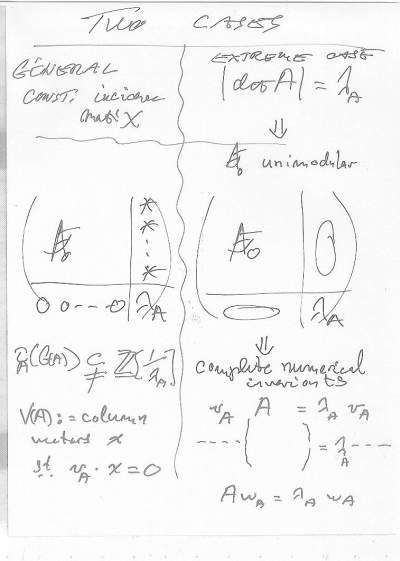 TWO CASES
GENERAL
CONST. incidence
matrix
EXTREME CASE
|det A| = λ_A
⇓
A_0 unimodular
A_0 * * ⋮ *
0 0 --- 0 λ_A
A_0 0
0 λ_A
(G(A)) ⊊ ℤ[1/λ_A]
V(A) := column
vectors x
st v_A · x = 0
⇓
complete numerical
invariants
v_A A = λ_A v_A
---- ( ) = λ_A ----
A w_A = λ_A w_A